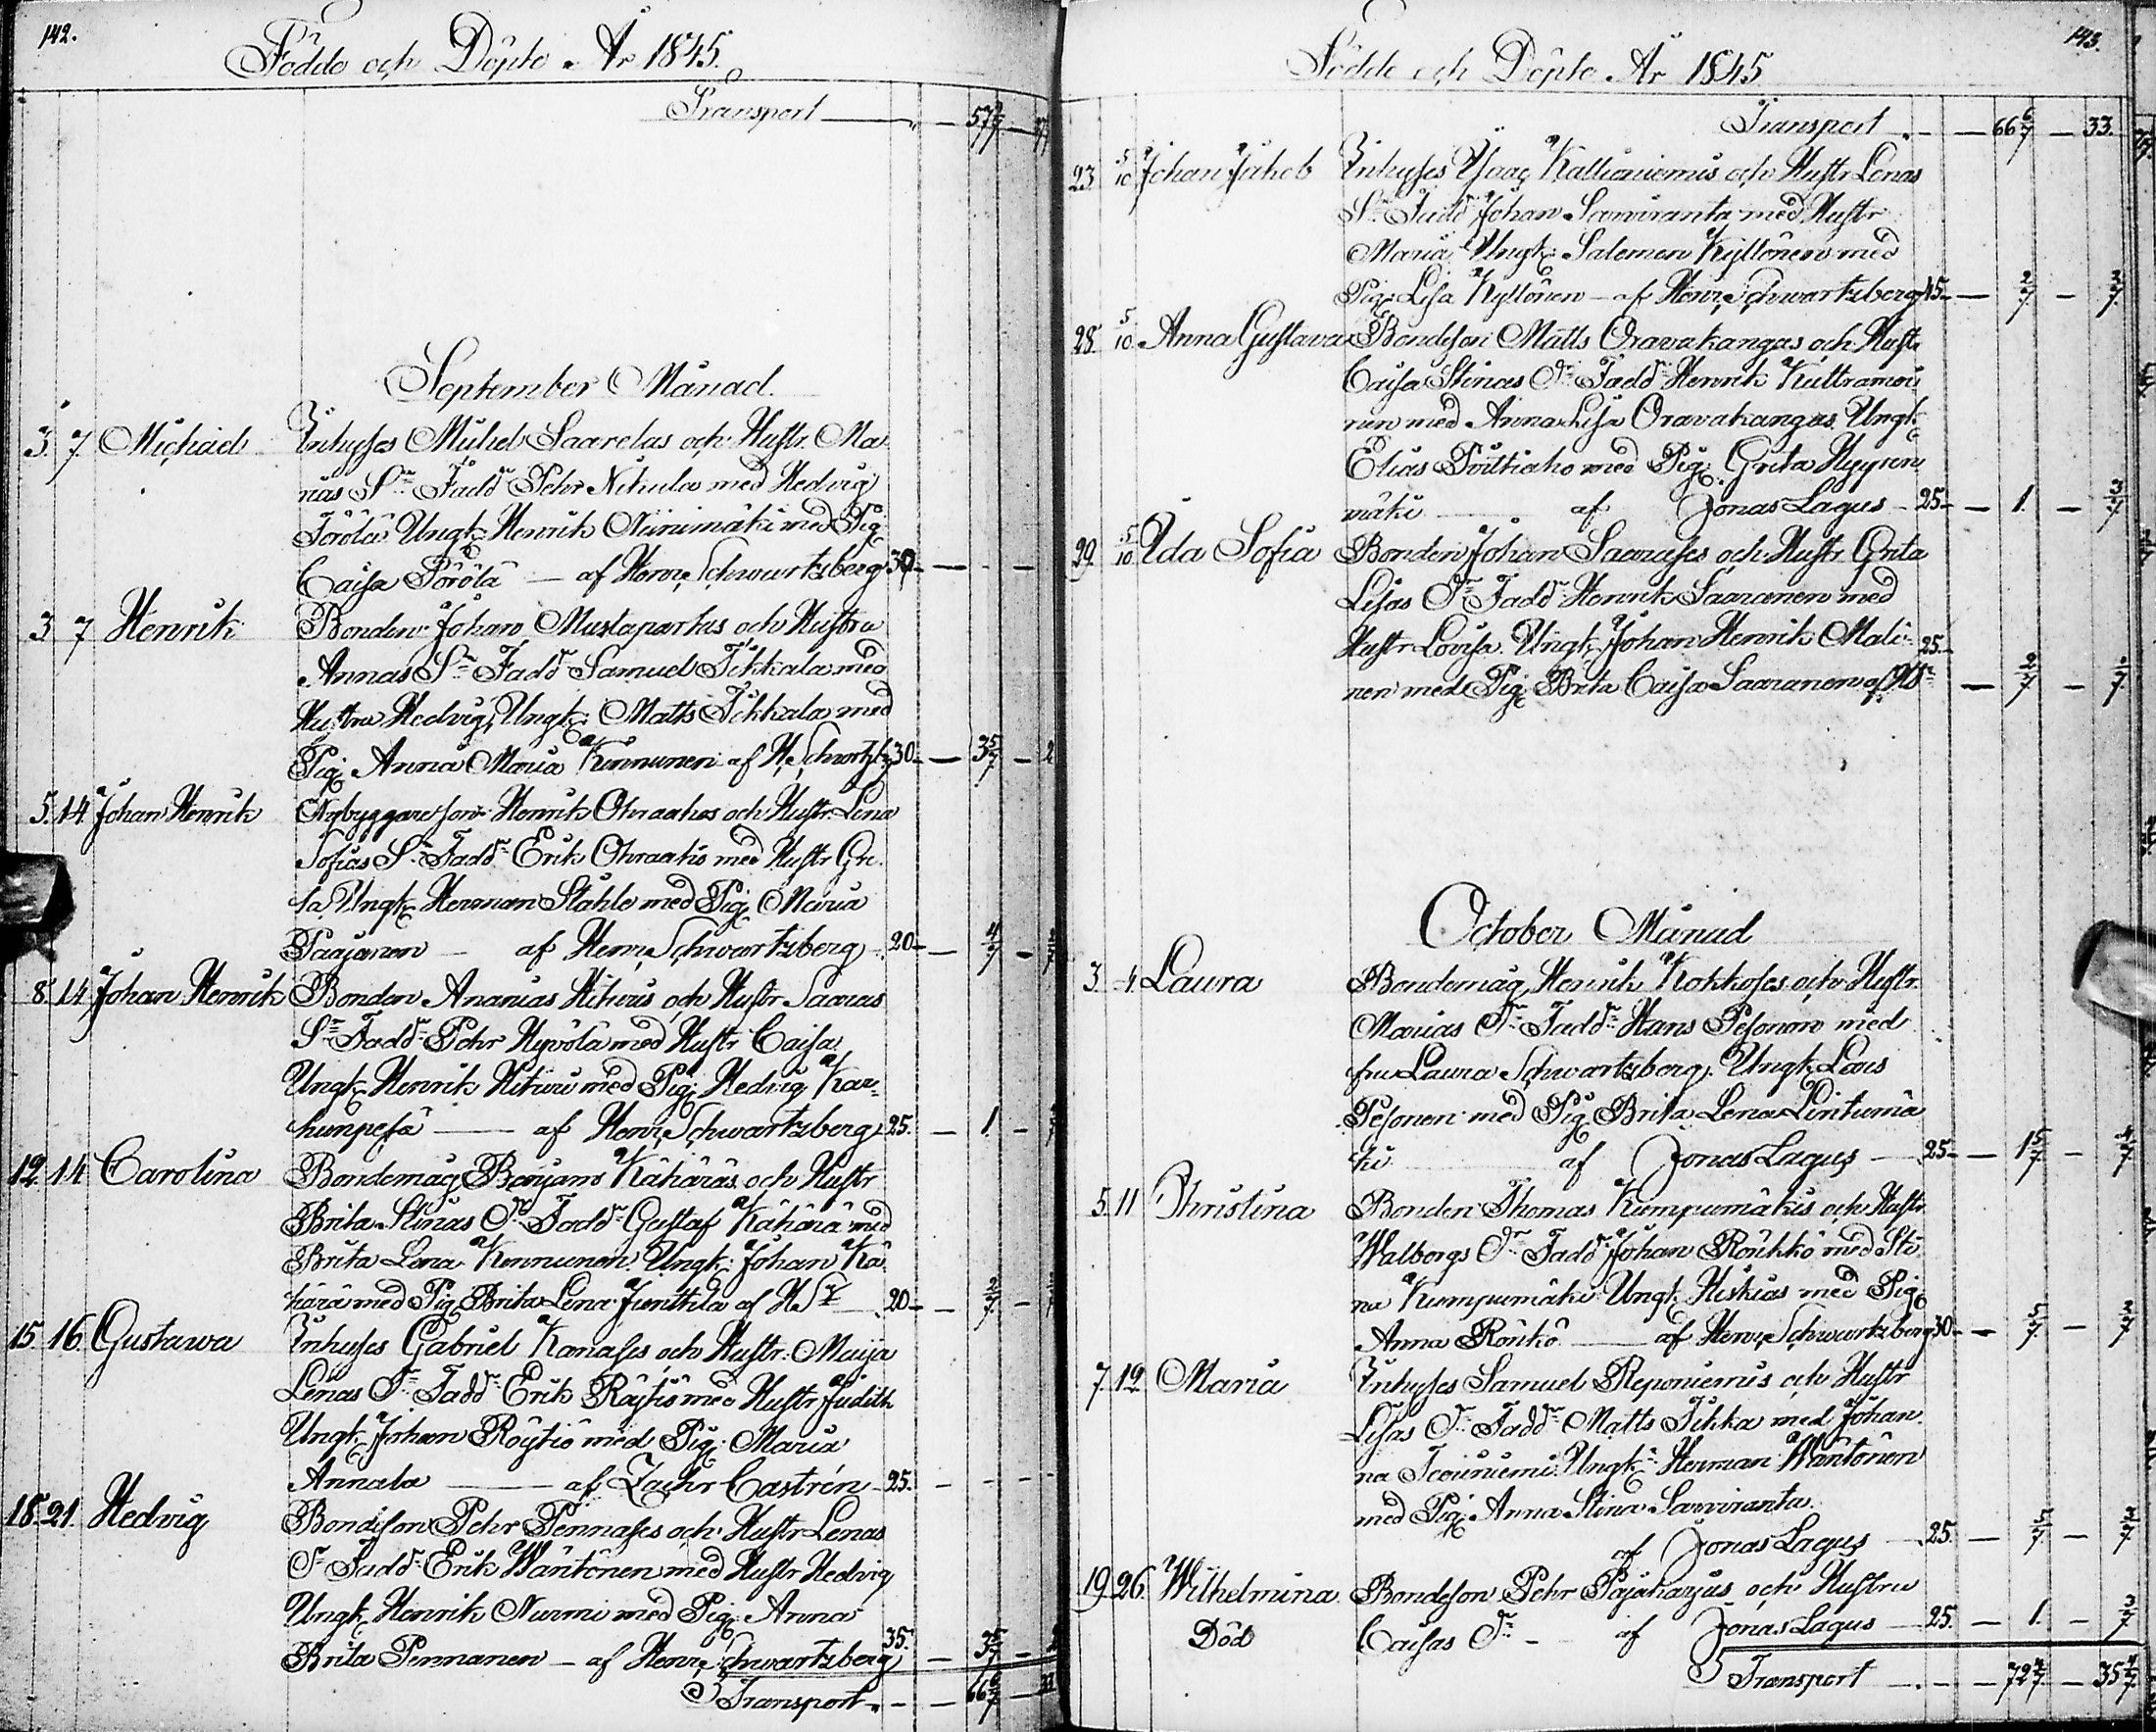 142.
Födde och Döpte År 1845.
Transport
September Månad.
3. 7. Michael Inhyses Mickel Saarelas och Hustr. Ma
rias Sn Fadd Pehr Nikula med Hedvig
Törölä Ungk: Henrik Niinimäki med Pig
Caisa Törölä — af Henr. Schwartzberg 30
3 7 Henrik Bonden Johan Mustaparkas och Hustru
Annas Sn Fadd Samuel Tikkala med
Hustru Hedvig, Ungk: Matts Tikkala med
Pig: Anna Maria Kinnunen af H. Schwrtzb: 30 — 3 5/7
5. 14. Johan Henrik Nybyggareson Henrik Ohraahos och Hustr. Lena
Sofias Sn Fadd: Erik Ohraaho med Hustr Gre
ta Ungk: Herman Ståhle med Pig: Maria
Paajanen — af Henr. Schwartzberg 20 — 4/7
8. 14. Johan Henrik Bonden Ananias Hiturs och Hustr Saaras
Sn Fadd: Pehr Hyvölä med Hustr Caisa,
Ungk: Henrik Hituri med Pig: Hedvig Kar
hunpesä — af Henr. Schwartzberg 25. — 1.
12. 14 Carolina Bondemåg Benjams Kähäräs och Hustr
Brita Stinas Dr Fadd: Gustaf Kähärä med
Brita Lena Kinnunen Ungk: Johan Kä
härä med Pig Brita Lena Junttila af H. S 20 — 2/7
15. 16. Gustawa Inhyses Gabriel Kanases och Hustr. Maija
Lenas Dr Fadd: Erik Röytiö med Hustr Judith
Ungk: Johan Röytiö med Pig: Maria
Annala — af Zachr Castrén 25.
18. 21. Hedvig Bondeson Pehr Pennases och Hustr Lenas
Dr Fadd: Erik Wäntönen med Hustr Hedvig
Ungk: Henrik Nurmi med Pig: Anna
Brita Pennanen — af Henr. Schwartzberg 35. — 3 5/7
Transport — 66 6/7
143.
Födde och Döpte År 1845
Transport — 66 6/7 — 33.
23. 5/10 Johan Jakob Inhyses Isaac Kallioniemis och Hustr Lenas
Sn Fadd: Johan Saaviranta med Hustr
Maria Ungk: Salomon Kyllönen med
Pig: Lisa Kyllönen — af Henr. Schwartzberg 45 — 2/7 — 3/7
28. 5/10 Anna Gustava Bondeson Matts Oravakangas och Hustr
Caisa Stinas Dr Fadd: Henrik Kuttramoi
nen med Anna Lisa Oravakangas, Ungk
Elias Poittiaho med Pig: Greta Hyyren
mäki — af Jonas Lagus 25 — 1. — 3/7
29. 5/10 Ida Sofia Bonden Johan Saarases och Hustr Greta
Lisas Dr Fadd: Henrik Saaranen med
Hustr Lovisa. Ungk: Johan Henrik Mali
nen med Pig: Brita Caisa Saaranen af HS 25 — 2/7 — 2/7
October Månad
3. 4. Laura Bondemåg Henrik Kokkoses och Hustr.
Marias Dr Fadd: Hans Pesonen med
fru Laura Schwartzberg. Ungk: Lars
Pesonen med Pig Brita Lena Lintumä
ki — af Jonas Lagus 25 — 1 5/7 — 4/7
5. 11 Christina Bonden Thomas Kumpumäkis och Hustr
Walborgs Dr Fadd: Johan Roukkö med Sti
na Kumpumäki Ungk: Hiskias med Pig:
Anna Roukö — af Henr. Schwartzberg 30 — 5/7 — 3/7
7. 12 Maria Inhyses Samuel Reponiemis och Hustr
Lisas Dr Fadd: Matts Tikka med Johan
na Tervaniemi Ungk: Herman Wäntönen
med Pig: Anna Stina Saaviranta.
af Jonas Lagus 25. — 5/7 — 3/7
19. 26. Wilhelmina Bondeson Pehr Pajuharjus och Hustru
Död Caisas Dr — af Jonas Lagus 25. — 1. — 3/7
Transport — 72 4/7 — 35 4/7